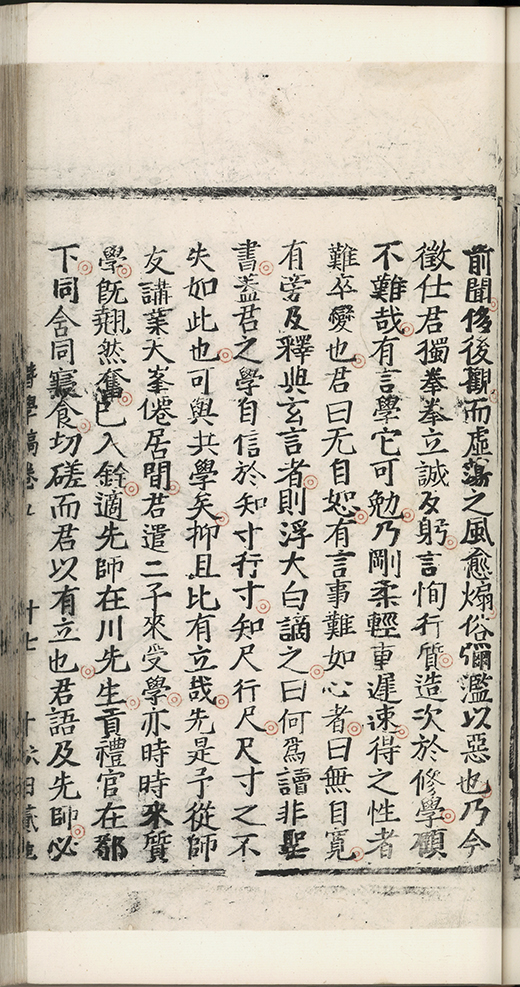 前聞修後觀而虛蕩之風愈煽俗彌濫以惡也乃今
徵仕君獨拳拳立誠反躬言恂行質造次於修學顧
不難哉有言學它可勉乃剛柔輕重遲速得之性者
難卒變也君曰无自恕有言事難如心者曰無自寬
有旁及釋典玄言者則浮大白謫之曰何為讀非聖
書葢君之學自信於知寸行寸知尺行尺尺寸之不
失如此也可與共學矣抑且比有立哉先是予從師
友講業大峯僊居間君遣二子來受學亦時時來質
學旣翹然奮已入
適先師在川先生貢禮官在都
下同舍同寢食切磋而君以有立也君語及先師必
學稿卷
十七